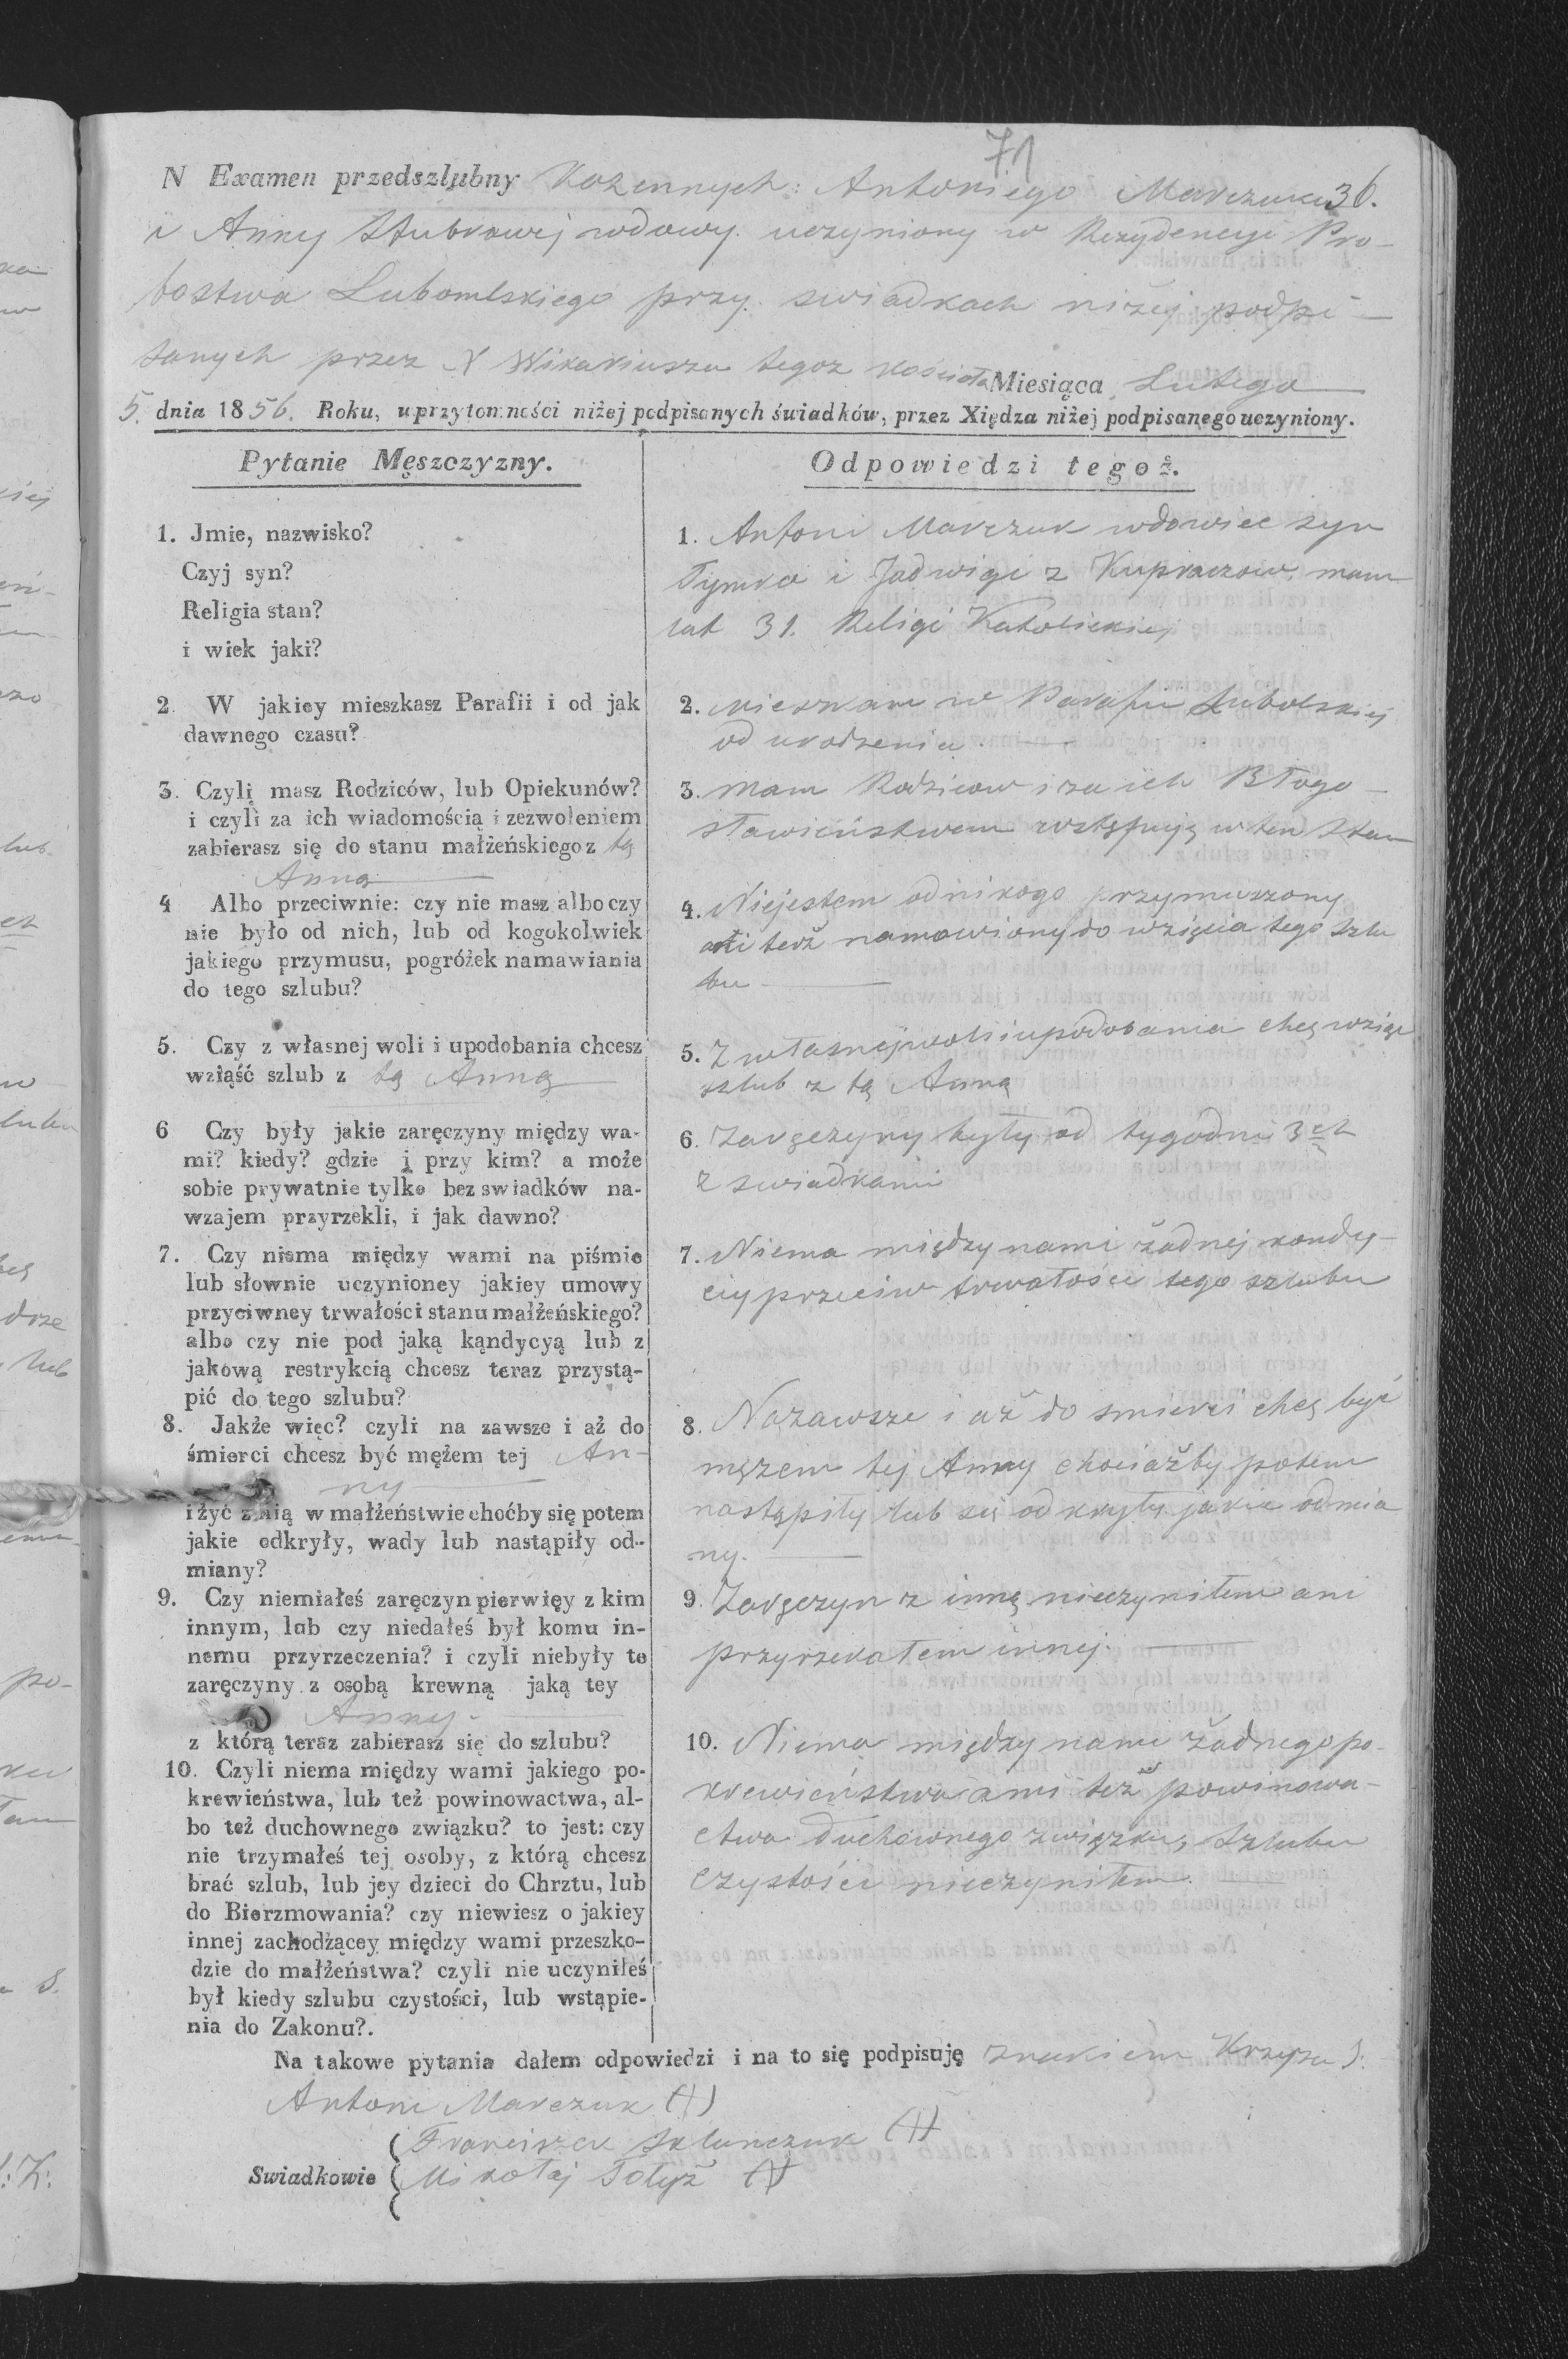 71
N Examen przedszlubny kozennych: Antoniego Marczuka 36.
i Anny wdowy uczyniony w Rezydencyi Pro-
bostwa Lubomlskiego przy swiadkach niżej podpi-
sanych przez X Wikariusza tegoz kościoła Miesiąca Lutego
5. dnia 1856. Roku, uprzytomności niżej podpisanych świadków, przez Xiędza niżej podpisanego uczyniony.
Pytanie Męszczyzny.
1. Jmie, nazwisko?
Czyj syn?
Religia stan?
i wiek jaki?
2 W jakiey mieszkasz Parafii i od jak
dawnego czasu?
3. Czyli masz Rodziców, lub Opiekunów?
i czyli za ich wiadomością i zezwoleniem
zabierasz się do stanu małżeńskiego z tą
Anną
4 Albo przeciwnie: czy nie masz albo czy
nie było od nich, lub od kogokolwiek
jakiego przymusu, pogróżek namawiania
do tego szlubu?
5. Czy z własnej woli i upodobania chcesz
wziąść szlub z tą Anną
6 Czy były jakie zaręczyny między wa-
mi? kiedy? gdzie i przy kim? a może
sobie prywatnie tylko bez swiadków na-
wzajem przyrzekli, i jak dawno?
7. Czy niema między wami na piśmie
lub słownie uczynioney jakiey umowy
przyciwney trwałości stanu małżeńskiego?
albo czy nie pod jaką kądycyą lub z
jakową restrykcią chcesz teraz przystą-
pić do tego szlubu?
8. Jakże więc? czyli na zawsze i aż do
śmierci chcesz być mężem tej An-
ny
i żyć z nią w małżeństwie choćby się potem
jakie odkryły, wady lub nastąpiły od-
miany?
9. Czy niemiałeś zaręczyn pierwięy z kim
innym, lub czy niedałeś był komu in-
nemu przyrzeczenia? i czyli niebyły to
zaręczyny z osobą krewną jaką tey
Anny.
z którą teraz zabierasz się do szlubu?
10. Czyli niema między wami jakiego po-
krewieństwa, lub też powinowactwa, al-
bo też duchownego związku? to jest: czy
nie trzymałeś tej osoby, z którą chcesz
brać szlub, lub jey dzieci do Chrztu, lub
do Bierzmowania? czy niewiesz o jakiey
innej zachodżącey między wami przeszko-
dzie do małżeństwa? czyli nie uczyniłeś
był kiedy szlubu czystości, lub wstąpie-
nia do Zakonu?.
Odpowiedzi tegoż.
1. Antoni Marczuk wdowiec syn
Tymka i Jadwigi z Kupraczow, mam
lat 31. Religi Katolickiej
2. mieszkam w Parafii Lubolskiej
od urodzenia
3. mam Rodzicow i za ich Błogo-
sławieństwem wstępuję w ten stan
4. Niejestem od nikogo przymuszony
ani też namowiony do wzięcia tego szlu
bu
5. Z własnej woli i upodobania chcę wziąć
szlub z tą Anną
6. Zaręczyny były od tygodni 3ch
z swiadkami
7. Niema między nami żadnej kondy-
cyi przeciw trwałości tego szlubu
8. Nazawsze i aż do smierci chcę być
mężem tej Anny chociażby potem
nastąpiły lub się odkryły jakie odmia
ny.
9. Zaręczyn z inną nieczyniłem ani
przyrzekałem innej.
10. Niema między nami żadnego po-
krewieństwa ani też powinowa-
ctwa duchownego związku, szlubu
czystości nieczyniłem.
Na takowe pytania dałem odpowiedzi i na to się podpisuję znakiem Krzyża S.
Antoni Marczuk (+)
Franciszek (+)
Swiadkowie Mikołaj Tołyż (+)